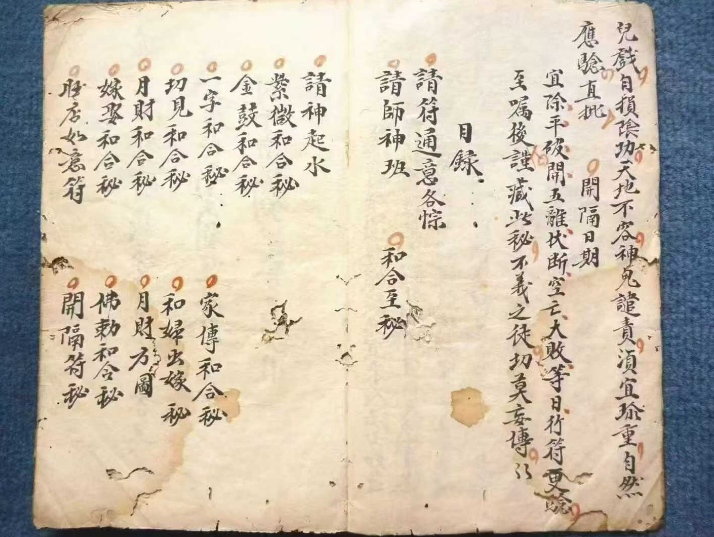 兒戲自損陰功天地不容神鬼譴責須宜珍重自然
應驗直批
開隔日期
宜除平破開五離伏断空亡大敗等日行符更驗
至囑後謹藏此秘不義之徒切莫妄傳
目錄
請符通意各惊
請師神班
和合至秘
請神起水
紫微和合秘
金鼓和合秘
一字和合秘
家傳和合秘
切見和合秘
和婦出嫁秘
月財和合秘
月財方圖
嫁娶和合秘
佛勅和合秘
旺店如意符
開隔符秘